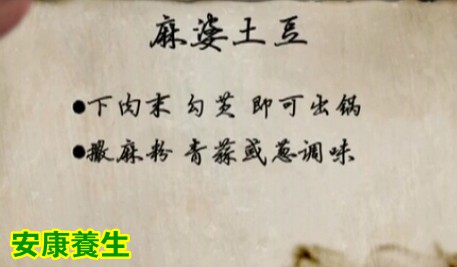 麻婆土豆
●下肉末 勾芡 即可出锅
●撒麻粉 青蒜或葱调味
安康養生